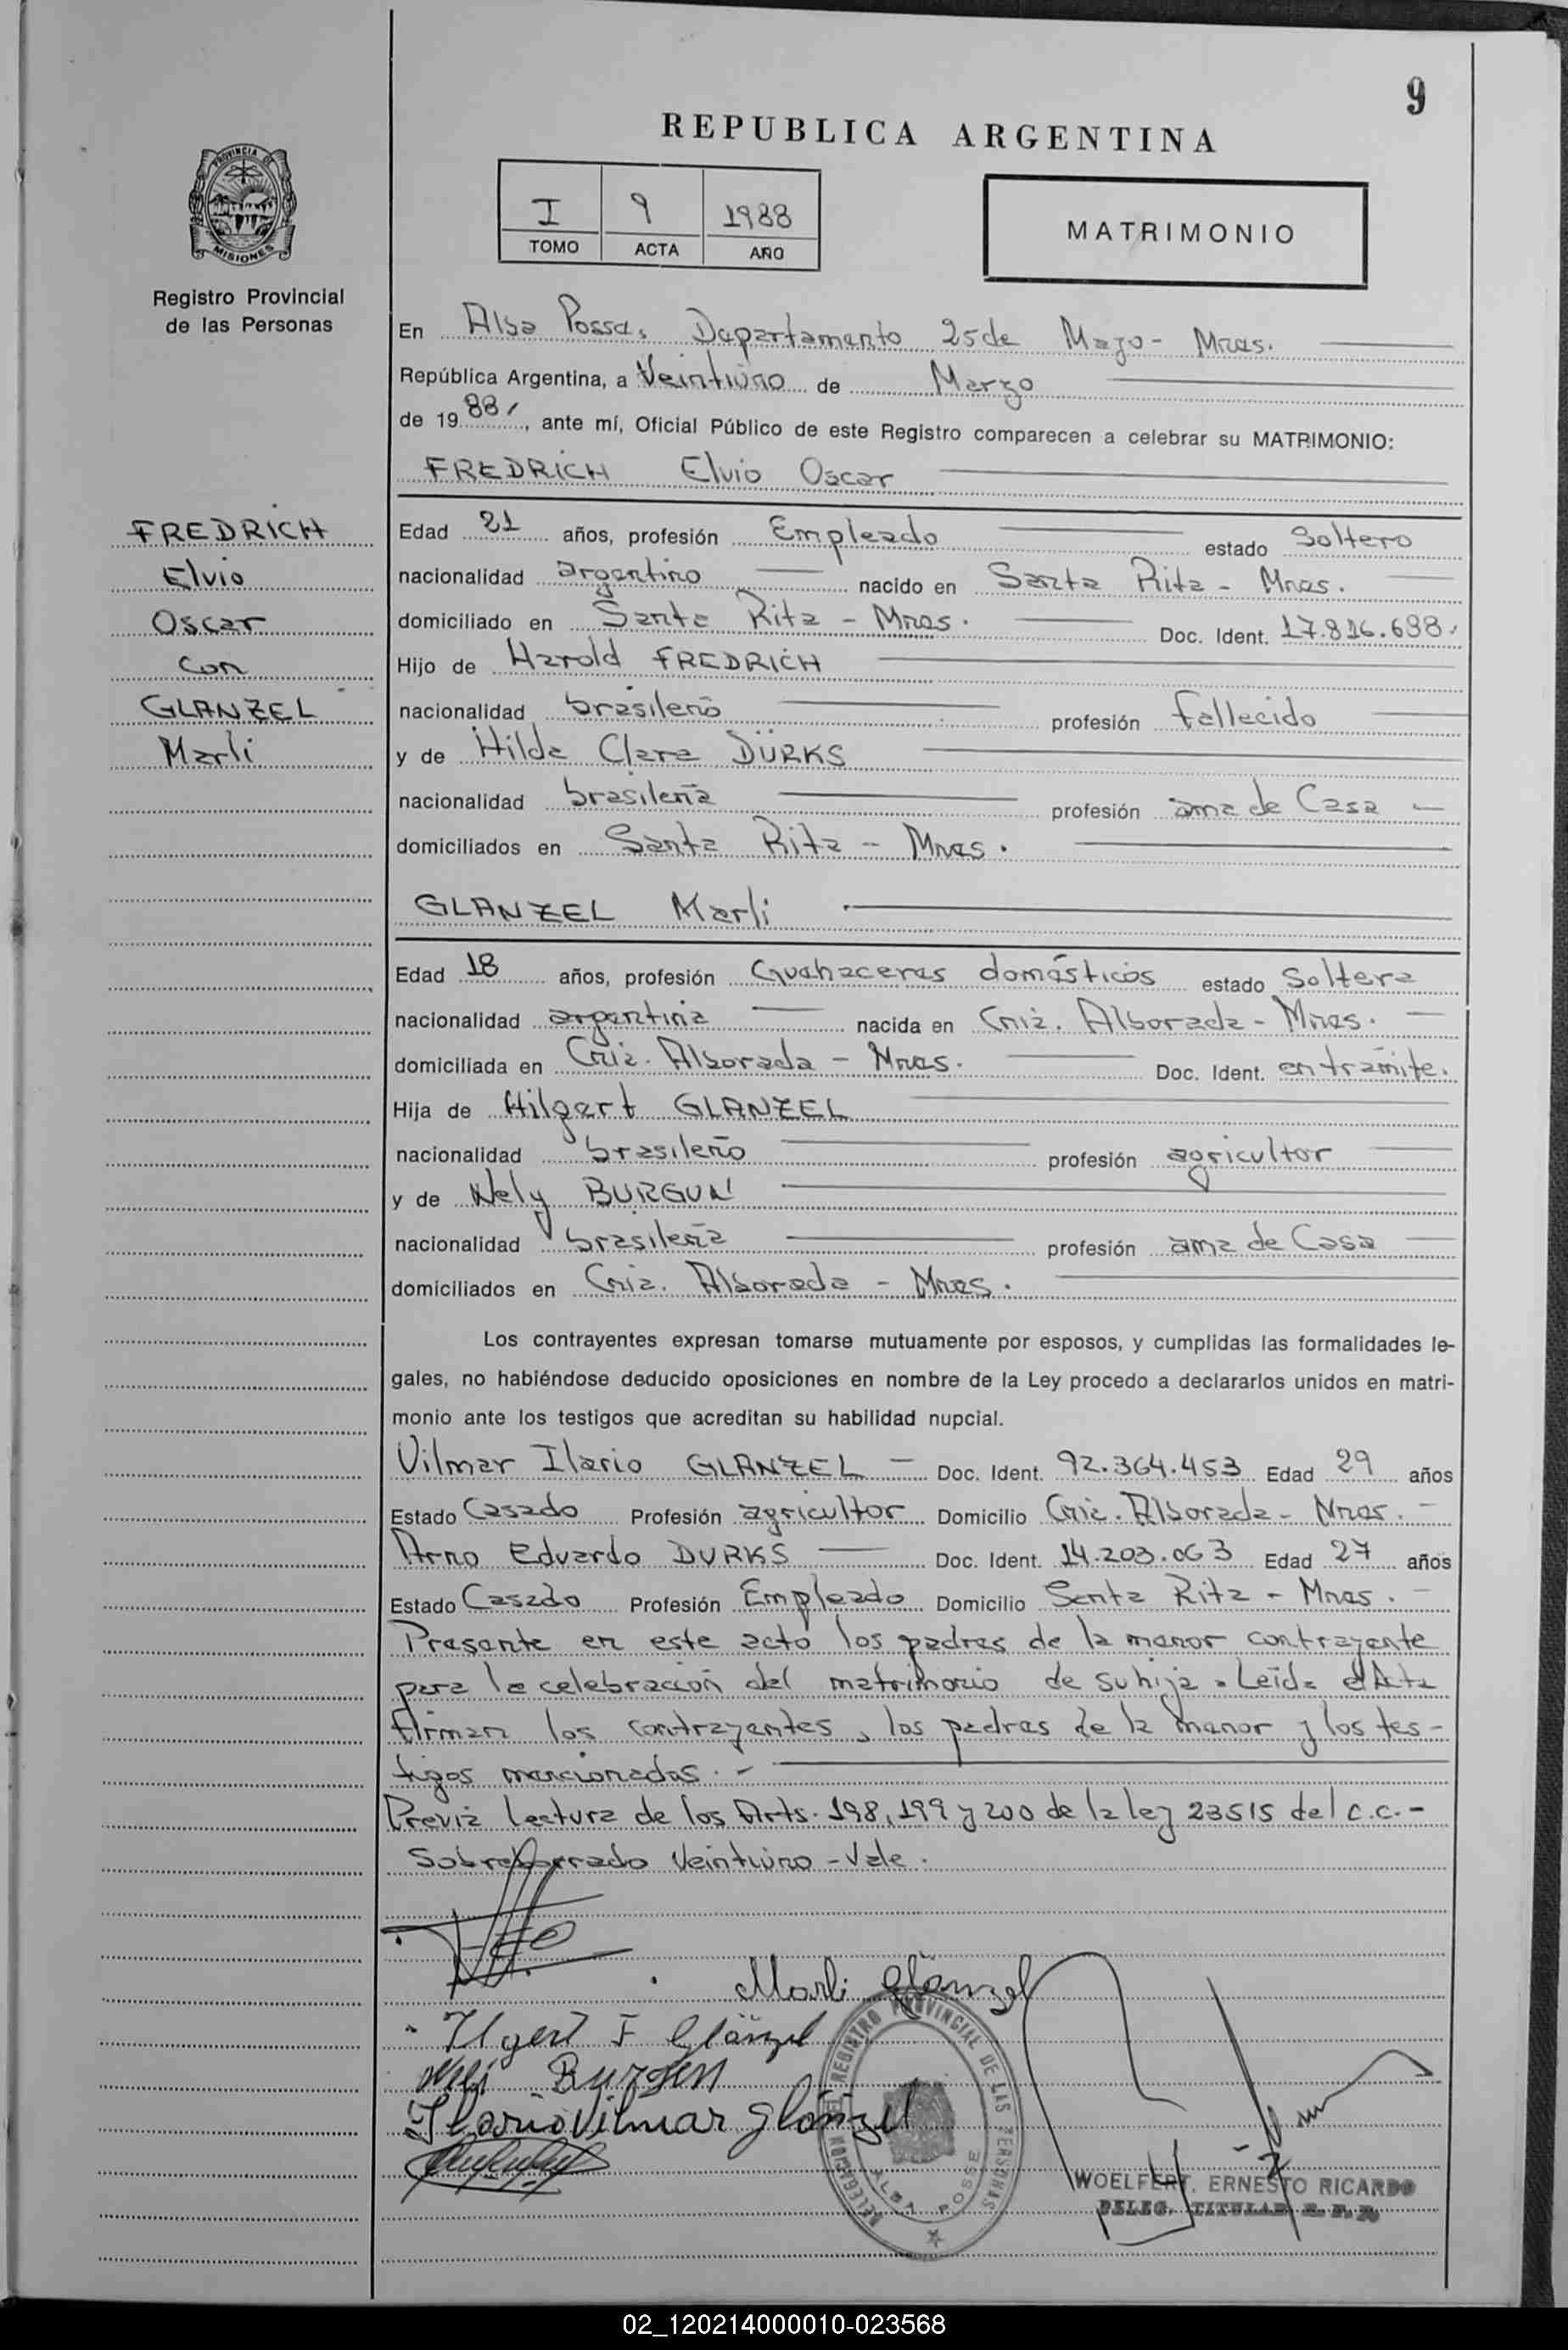 9
REPUBLICA ARGENTINA
PROVINCIA DE
MISIONES
Registro Provincial
de las Personas
I 9 1988
TOMO ACTA AÑO
MATRIMONIO
En Alba Posse, Departamento 25 de Mayo - Mnes.
República Argentina, a Veintiuno de Marzo
de 1988, ante mí, Oficial Público de este Registro comparecen a celebrar su MATRIMONIO:
FREDRICH Elvio Oscar
FREDRICH
Elvio
Oscar
con
GLANZEL
Marli
Edad 21 años, profesión Empleado estado Soltero
nacionalidad argentino nacido en Santa Rita - Mnes.
domiciliado en Santa Rita - Mnes. Doc. Ident. 17.816.698.
Hijo de Harold FREDRICH
nacionalidad brasileño profesión fallecido
y de Hilda Clara DÜRKS
nacionalidad brasileña profesión ama de Casa
domiciliados en Santa Rita - Mnes.
GLANZEL Marli
Edad 18 años, profesión Quehaceres domésticos estado Soltera
nacionalidad argentina nacida en Cnia. Alborada - Mnes.
domiciliada en Cnia. Alborada - Mnes. Doc. Ident. en trámite.
Hija de Hilgert GLANZEL
nacionalidad brasileño profesión agricultor
y de Nely BURGUN
nacionalidad brasileña profesión ama de Casa
domiciliados en Cnia. Alborada - Mnes.
Los contrayentes expresan tomarse mutuamente por esposos, y cumplidas las formalidades le-
gales, no habiéndose deducido oposiciones en nombre de la Ley procedo a declararlos unidos en matri-
monio ante los testigos que acreditan su habilidad nupcial.
Vilmar Ilario GLANZEL - Doc. Ident. 92.364.453 Edad 29 años
Estado Casado Profesión agricultor Domicilio Cnia. Alborada - Mnes.
Arno Eduardo DURKS Doc. Ident. 14.203.063 Edad 27 años
Estado Casado Profesión Empleado Domicilio Santa Rita - Mnes.
Presente en este acto los padres de la menor contrayente
para la celebración del matrimonio de su hija. Leída el Acta
firman los contrayentes, los padres de la menor y los tes-
tigos mencionados. -
Previa lectura de los Arts. 198, 199 y 200 de la ley 23515 del c.c. -
Sobreborrado Veintiuno - Vale.
Marli Glänzel
Ilgert F Glänzel
Burgun
Ilario Vilmar Glänzel
DELEGACION DEL REGISTRO PROVINCIAL DE LAS PERSONAS
ALBA POSSE
WOELFERT, ERNESTO RICARDO
DELEG. TITULAR R. P. P.
02_120214000010-023568